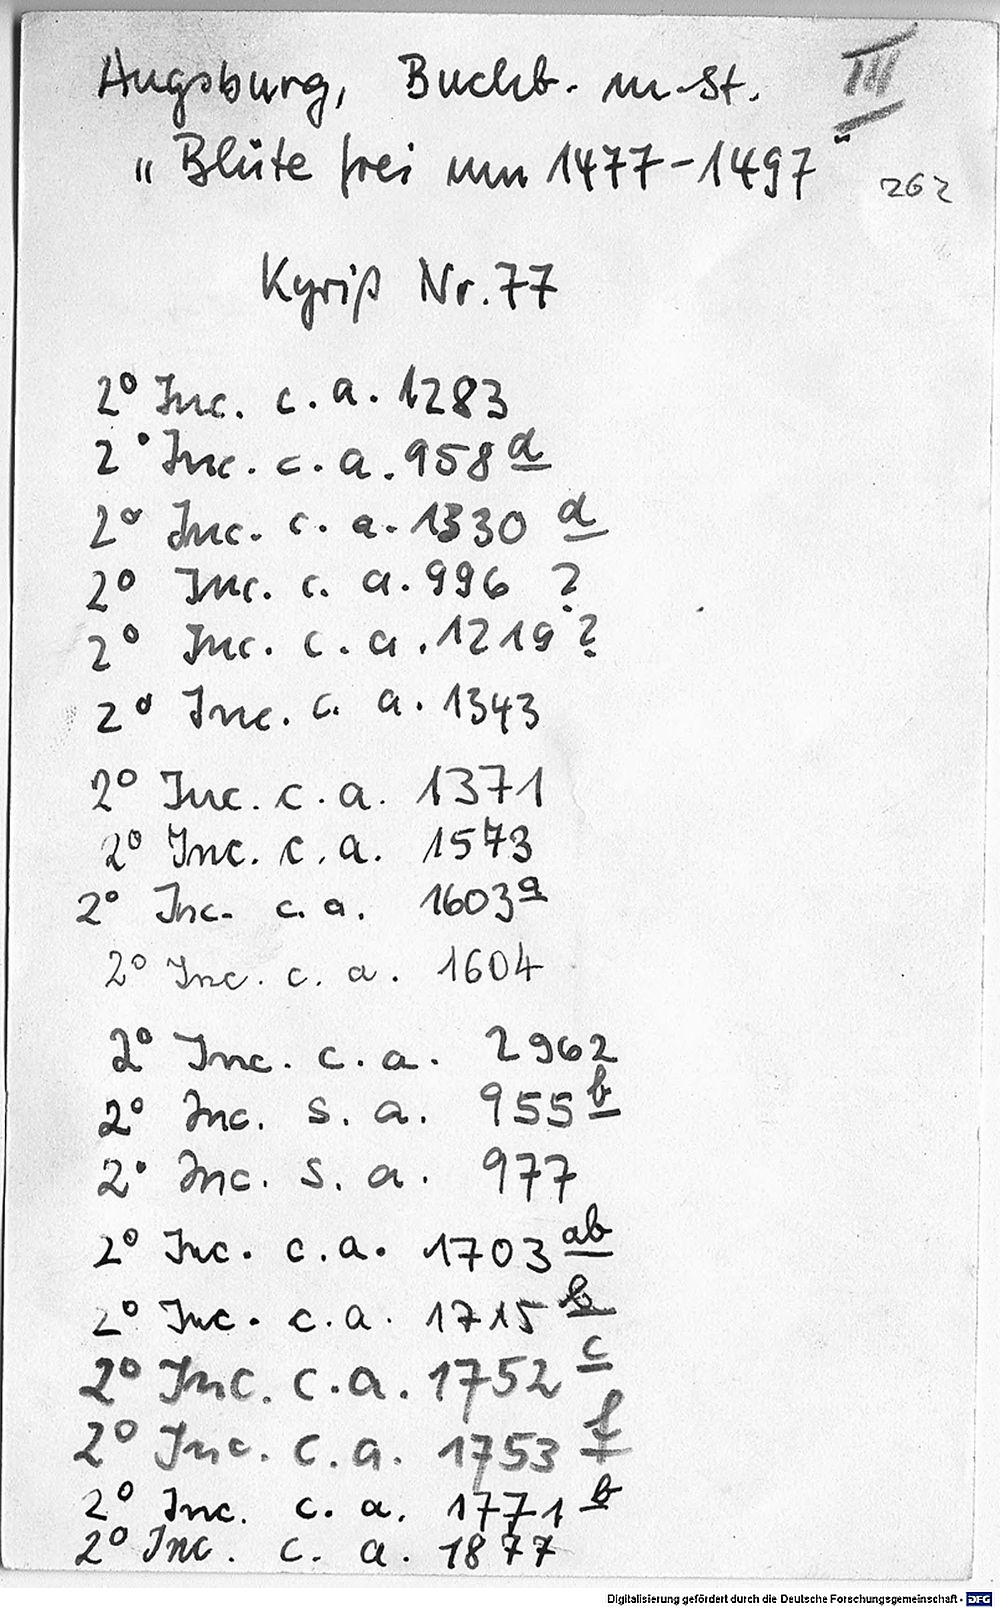 Augsburg, Buchb. m. St. III
"Blüte frei um 1477-1497" 262
Kyriß Nr. 77
2° Inc. c. a. 1283
2° Inc. c. a. 958 d
2° Inc. c. a. 1330 d
2° Inc. c. a. 996 ?
2° Inc. c. a. 1219 ?
2° Inc. c. a. 1343
2° Inc. c. a. 1371
2° Inc. c. a. 1573
2° Inc. c. a. 1603 a
2° Inc. c. a. 1604
2° Inc. c. a. 2962
2° Inc. s. a. 955 b
2° Inc. s. a. 977
2° Inc. c. a. 1703 ab
2° Inc. c. a. 1715 b
2° Inc. c. a. 1752 c
2° Inc. c. a. 1753 f
2° Inc. c. a. 1771 b
2° Inc. c. a. 1877
Digitalisierung gefördert durch die Deutsche Forschungsgemeinschaft - DFG